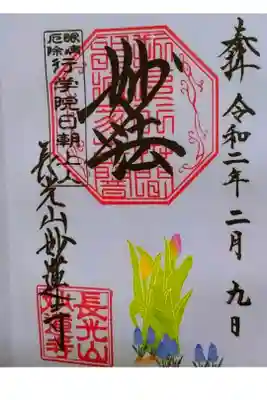 奉拝
令和二年二月九日
妙法
眼病
厄除
行学院日朝上人
長光山妙蓮寺
長光山
妙蓮寺